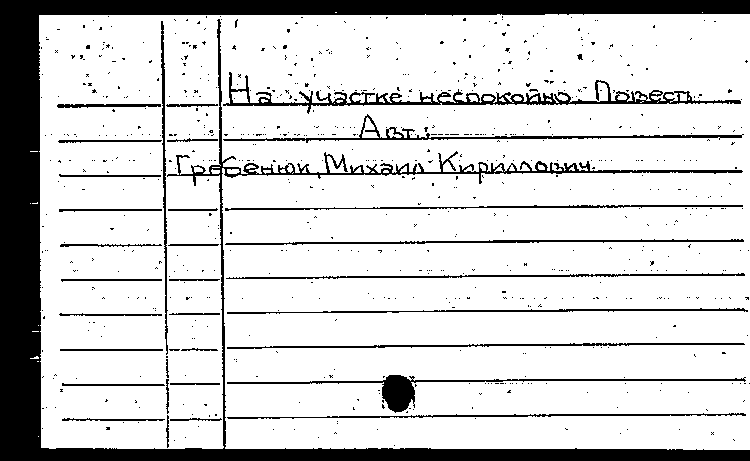 На участке неспокойно. Повесть.
Авт.:
Гребенюк, Михаил Кириллович.